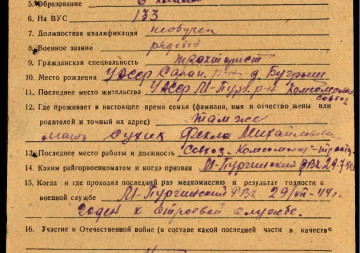 5. Образование 6 классов
6. На ВУС 133
7. Должностная квалификация необучен
8. Военное звание рядовой
9. Гражданская специальность тракторист
10. Место рождения УАССР р-н д.
11. Последнее место жительства УАССР М-Пург. р-н
12. Где проживает в настоящее время семья (фамилия, имя и отчество жены или
родителей и точный их адрес) там же
мать Фекла Михайловна
13. Последнее место работы и должность
14. Каким райгорвоенкоматом и когда призван М-Пургинский РВК
15. Когда и где проходил последний раз медкомиссию и результат годности к
военной службе М-Пургинский РВК 29/VII-44г.
годен к строевой службе.
16. Участие в Отечественной войне (в составе какой последней части в качестве